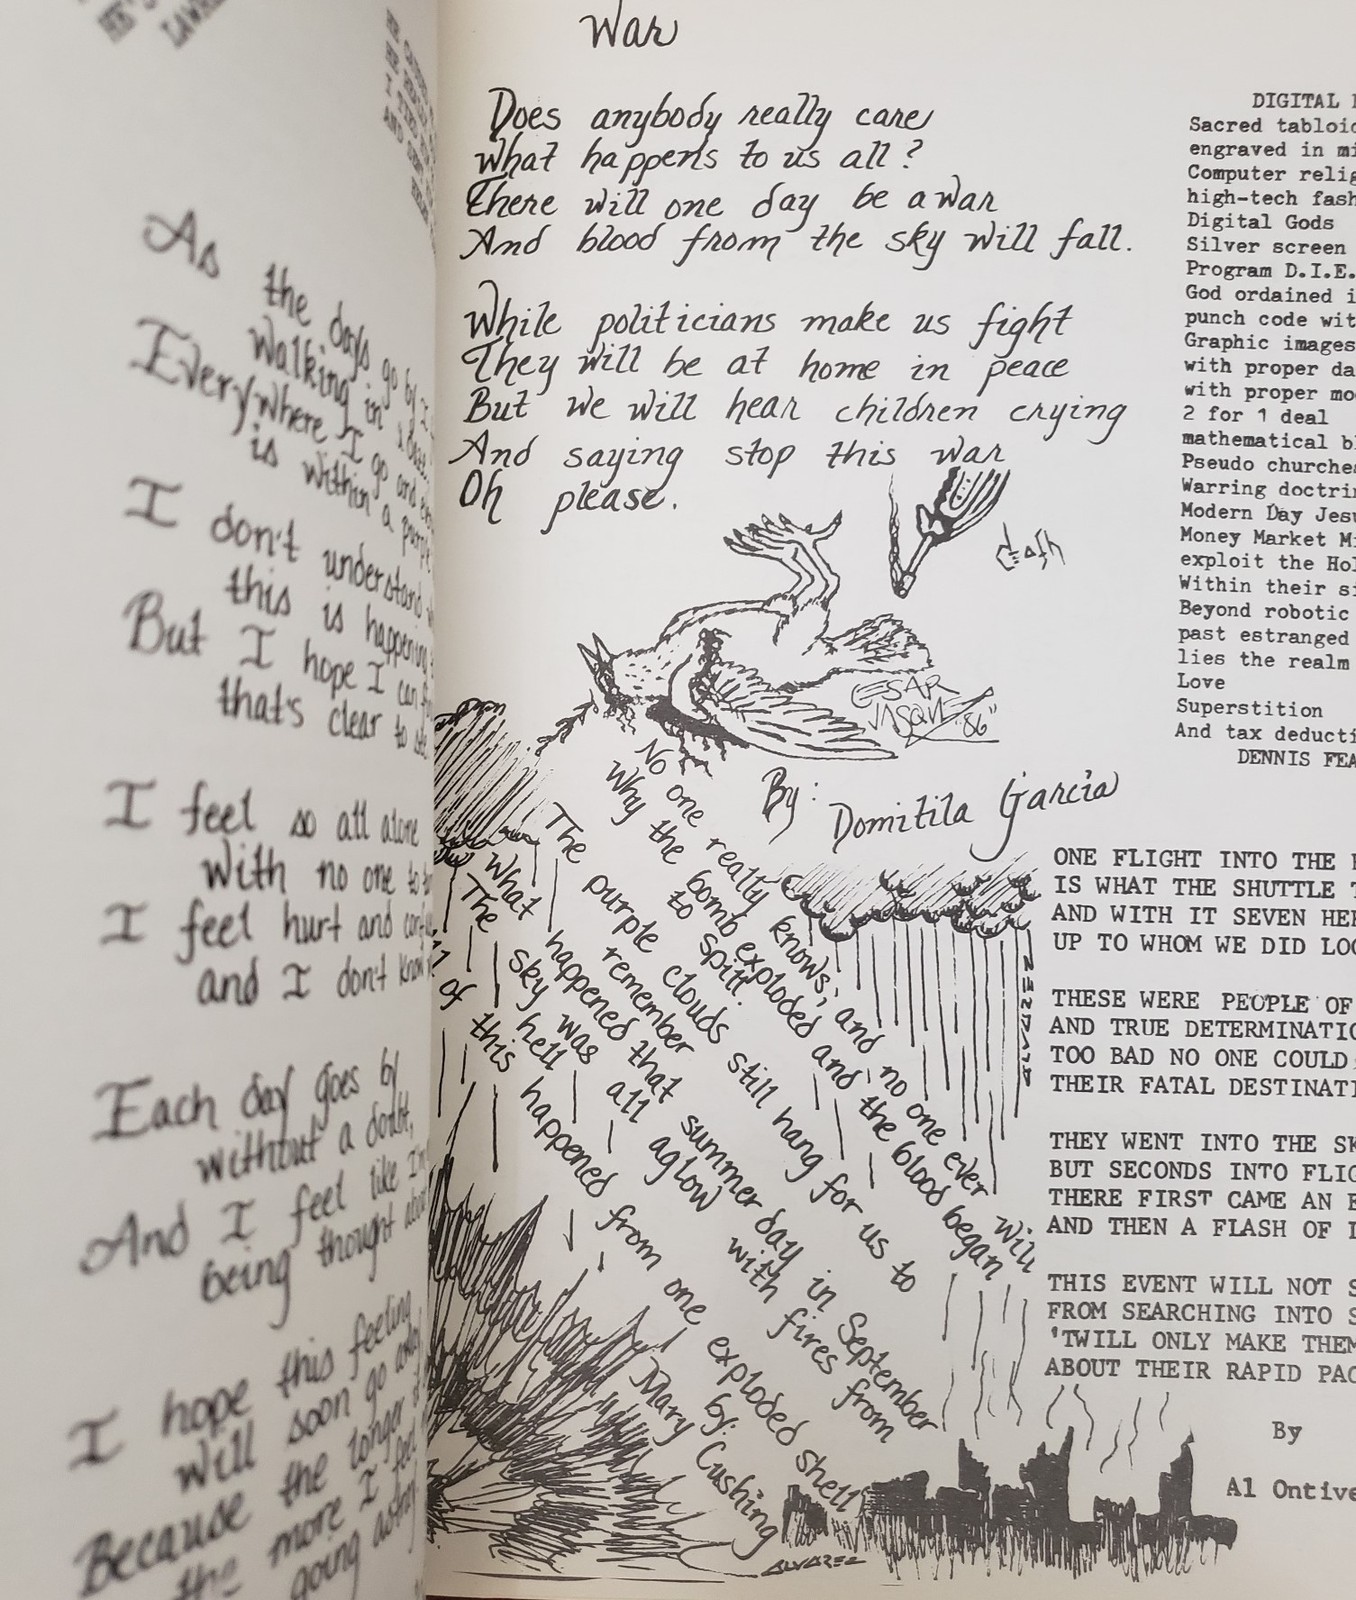 HE'S
LAWRE
AND
As the days go by I
Walking in a daze
Everywhere I go and
is within a purple
I don't understand
this is happening
But I hope I can
that's clear to
I feel so all alone
With no one to
I feel hurt and
and I don't know
Each day goes by
without a doubt,
And I feel like I'm
being thought about
I hope this feeling
will soon go away
Because the longer
the more I feel
going astray
War
Does anybody really care
What happens to us all?
There will one day be a war
And blood from the sky will fall.
While politicians make us fight
They will be at home in peace
But we will hear children crying
And saying stop this war
Oh please.
death
'86"
By: Domitila Garcia
No one really knows, and no one ever will
Why the bomb exploded and the blood began
to spill.
The purple clouds still hang for us to
remember
What happened that summer day in September
The sky was all aglow with fires from
hell
of this happened from one exploded shell
by:
Mary Cushing
ALVAREZ
DIGITAL
Sacred tabloid
engraved in mi
Computer relig
high-tech fash
Digital Gods
Silver screen
Program D.I.E.
God ordained i
punch code wit
Graphic images
with proper da
with proper mo
2 for 1 deal
mathematical bl
Pseudo churches
Warring doctrin
Modern Day Jesu
Money Market Mi
exploit the Hol
Within their si
Beyond robotic
past estranged
lies the realm
Love
Superstition
And tax deducti
DENNIS FEA
ONE FLIGHT INTO THE
IS WHAT THE SHUTTLE T
AND WITH IT SEVEN HE
UP TO WHOM WE DID LOO
THESE WERE PEOPLE OF
AND TRUE DETERMINATIO
TOO BAD NO ONE COULD
THEIR FATAL DESTINATI
THEY WENT INTO THE SK
BUT SECONDS INTO FLIG
THERE FIRST CAME AN E
AND THEN A FLASH OF L
THIS EVENT WILL NOT S
FROM SEARCHING INTO S
'TWILL ONLY MAKE THEM
ABOUT THEIR RAPID PAC
By
Al Ontive